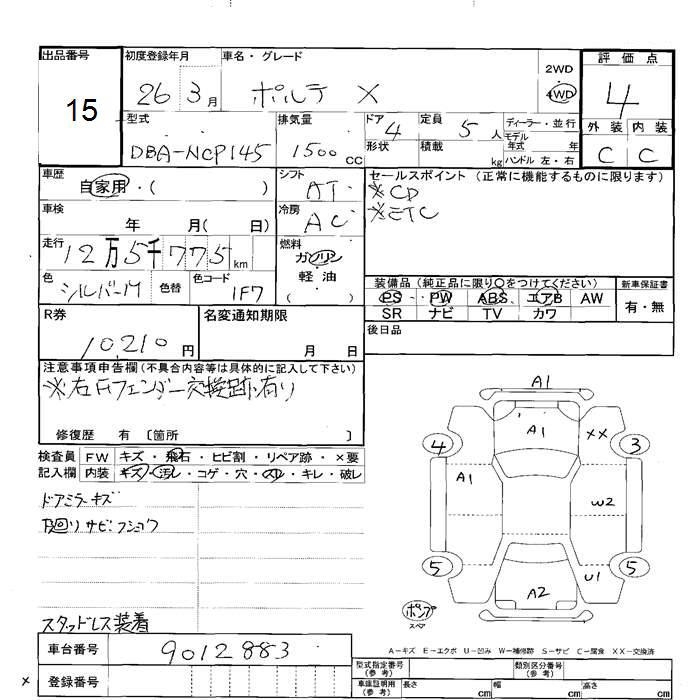 出品番号 初度登録年月 車名・グレード 評価点
15 26 3月 ポルテ X 2WD 4WD 4
型式 排気量 ドア 定員 ディーラー・並行 外装 内装
DBA-NCP145 1500cc 4 5人 モデル年式 年 C C
形状 積載 kg ハンドル 左・右
車歴 シフト セールスポイント (正常に機能するものに限ります)
自家用・( ) AT ※CD
車検 冷房 ※ETC
年 月( 日) AC
走行 燃料
12万5千775km ガソリン
色 色替 色コード 軽油
シルバーM 1F7 ( )
装備品 (純正品に限り○をつけてください) 新車保証書
PS PW ABS エアB AW 有・無
SR ナビ TV カワ
R券 名変通知期限 後日品
10,210円 月 日
注意事項申告欄 (不具合内容等は具体的に記入して下さい)
※右Fフェンダー交換跡有り
修復歴 有 〔箇所 〕
検査員 FW キズ・飛石・ヒビ割・リペア跡・×要
記入欄 内装 キズ・汚レ・コゲ・穴・スレ・キレ・破レ
ドアミラーキズ
下廻りサビ・フショク
スタッドレス装着
A1
4 A1 XX 3
A1 W2
5 U1 5
A2
ポンプ
スペア
A-キズ E-エクボ U-凹み W-補修跡 S-サビ C-腐食 XX-交換済
車台番号 9012883
型式指定番号 (参考) 類別区分番号 (参考)
× 登録番号
車庫証明用 (参考) 長さ cm 幅 cm 高さ cm